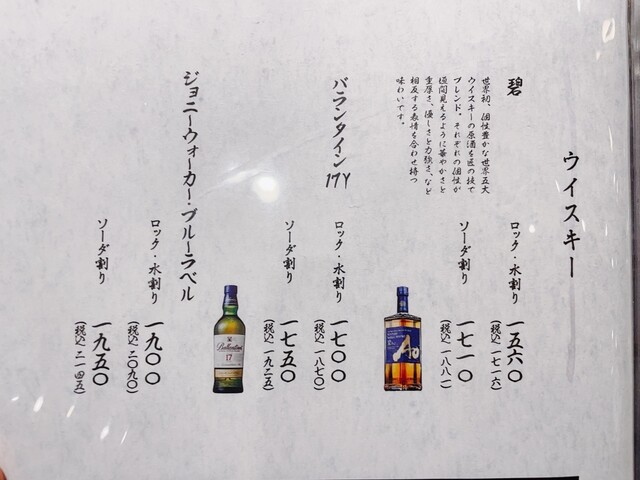 ウイスキー
碧
世界初、個性豊かな世界五大
ウイスキーの原酒を匠の技で
ブレンド。それぞれの個性が
垣間見えるように華やかさと
重厚さ、優しさと力強さ、など
相反する表情を合わせ持つ
味わいです。
ロック・水割り 一五六〇
(税込 一七一六)
ソーダ割り 一七一〇
(税込 一八八一)
Ao
バランタイン17Y
ロック・水割り 一七〇〇
(税込 一八七〇)
ソーダ割り 一七五〇
(税込 一九二五)
Ballantine's
17
ジョニーウォーカー・ブルーラベル
ロック・水割り 一九〇〇
(税込 二〇九〇)
ソーダ割り 一九五〇
(税込 二一四五)